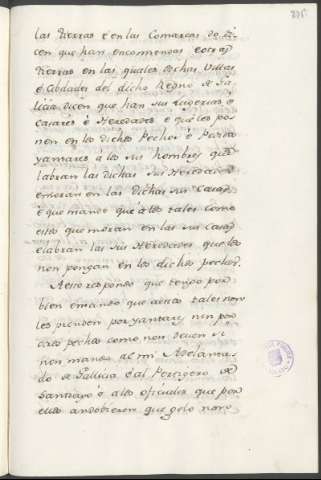 295
las tierras é en las Comarcas do di-
cen que han encomendas é otras
tierras en las quales dichas Villas
é Cibdades del dicho Regno de Ga-
licia dicen que han sus Lugeros é
casares é Heredades é que les po-
nen en los dichos Pechos é
yantares á los sus hombres que
labran las dichas sus Heredades
é moran en las dichas sus Casas
é que mande que á los tales como
estos que moran en las sus Casas
é labran las sus Heredades que les
non pongan en los dichos pechos.
A esto respondo que tengo por
bien é mando que á estos tales non
les prenden por yantares, nin por
otros pechos como non deven é si
non mando al mi Adelanta-
do de Gallicia é al Pertigero de
Santiago é á los oficiales que por
ellos andobieren que gelo non